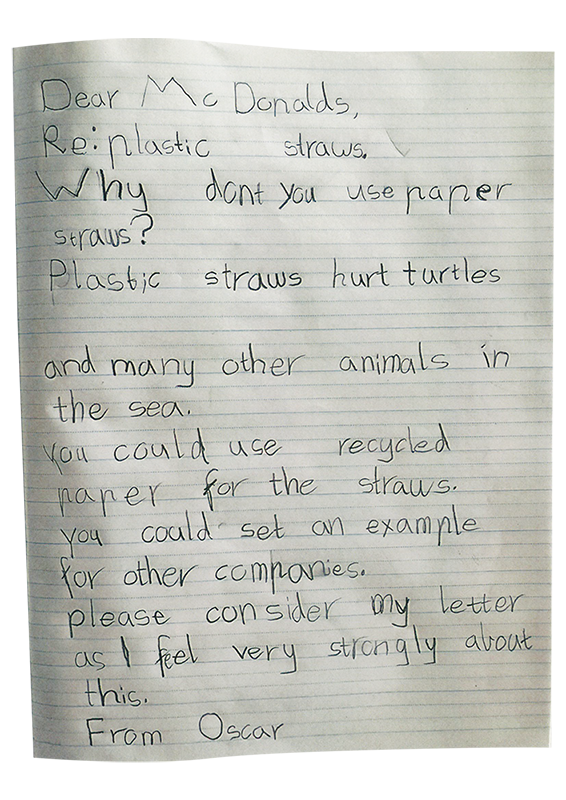 Dear Mc Donalds,
Re: plastic straws.
Why dont you use paper
straws?
Plastic straws hurt turtles
and many other animals in
the sea.
you could use recycled
paper for the straws.
you could set an example
for other companies.
please consider my letter
as I feel very strongly about
this.
From Oscar